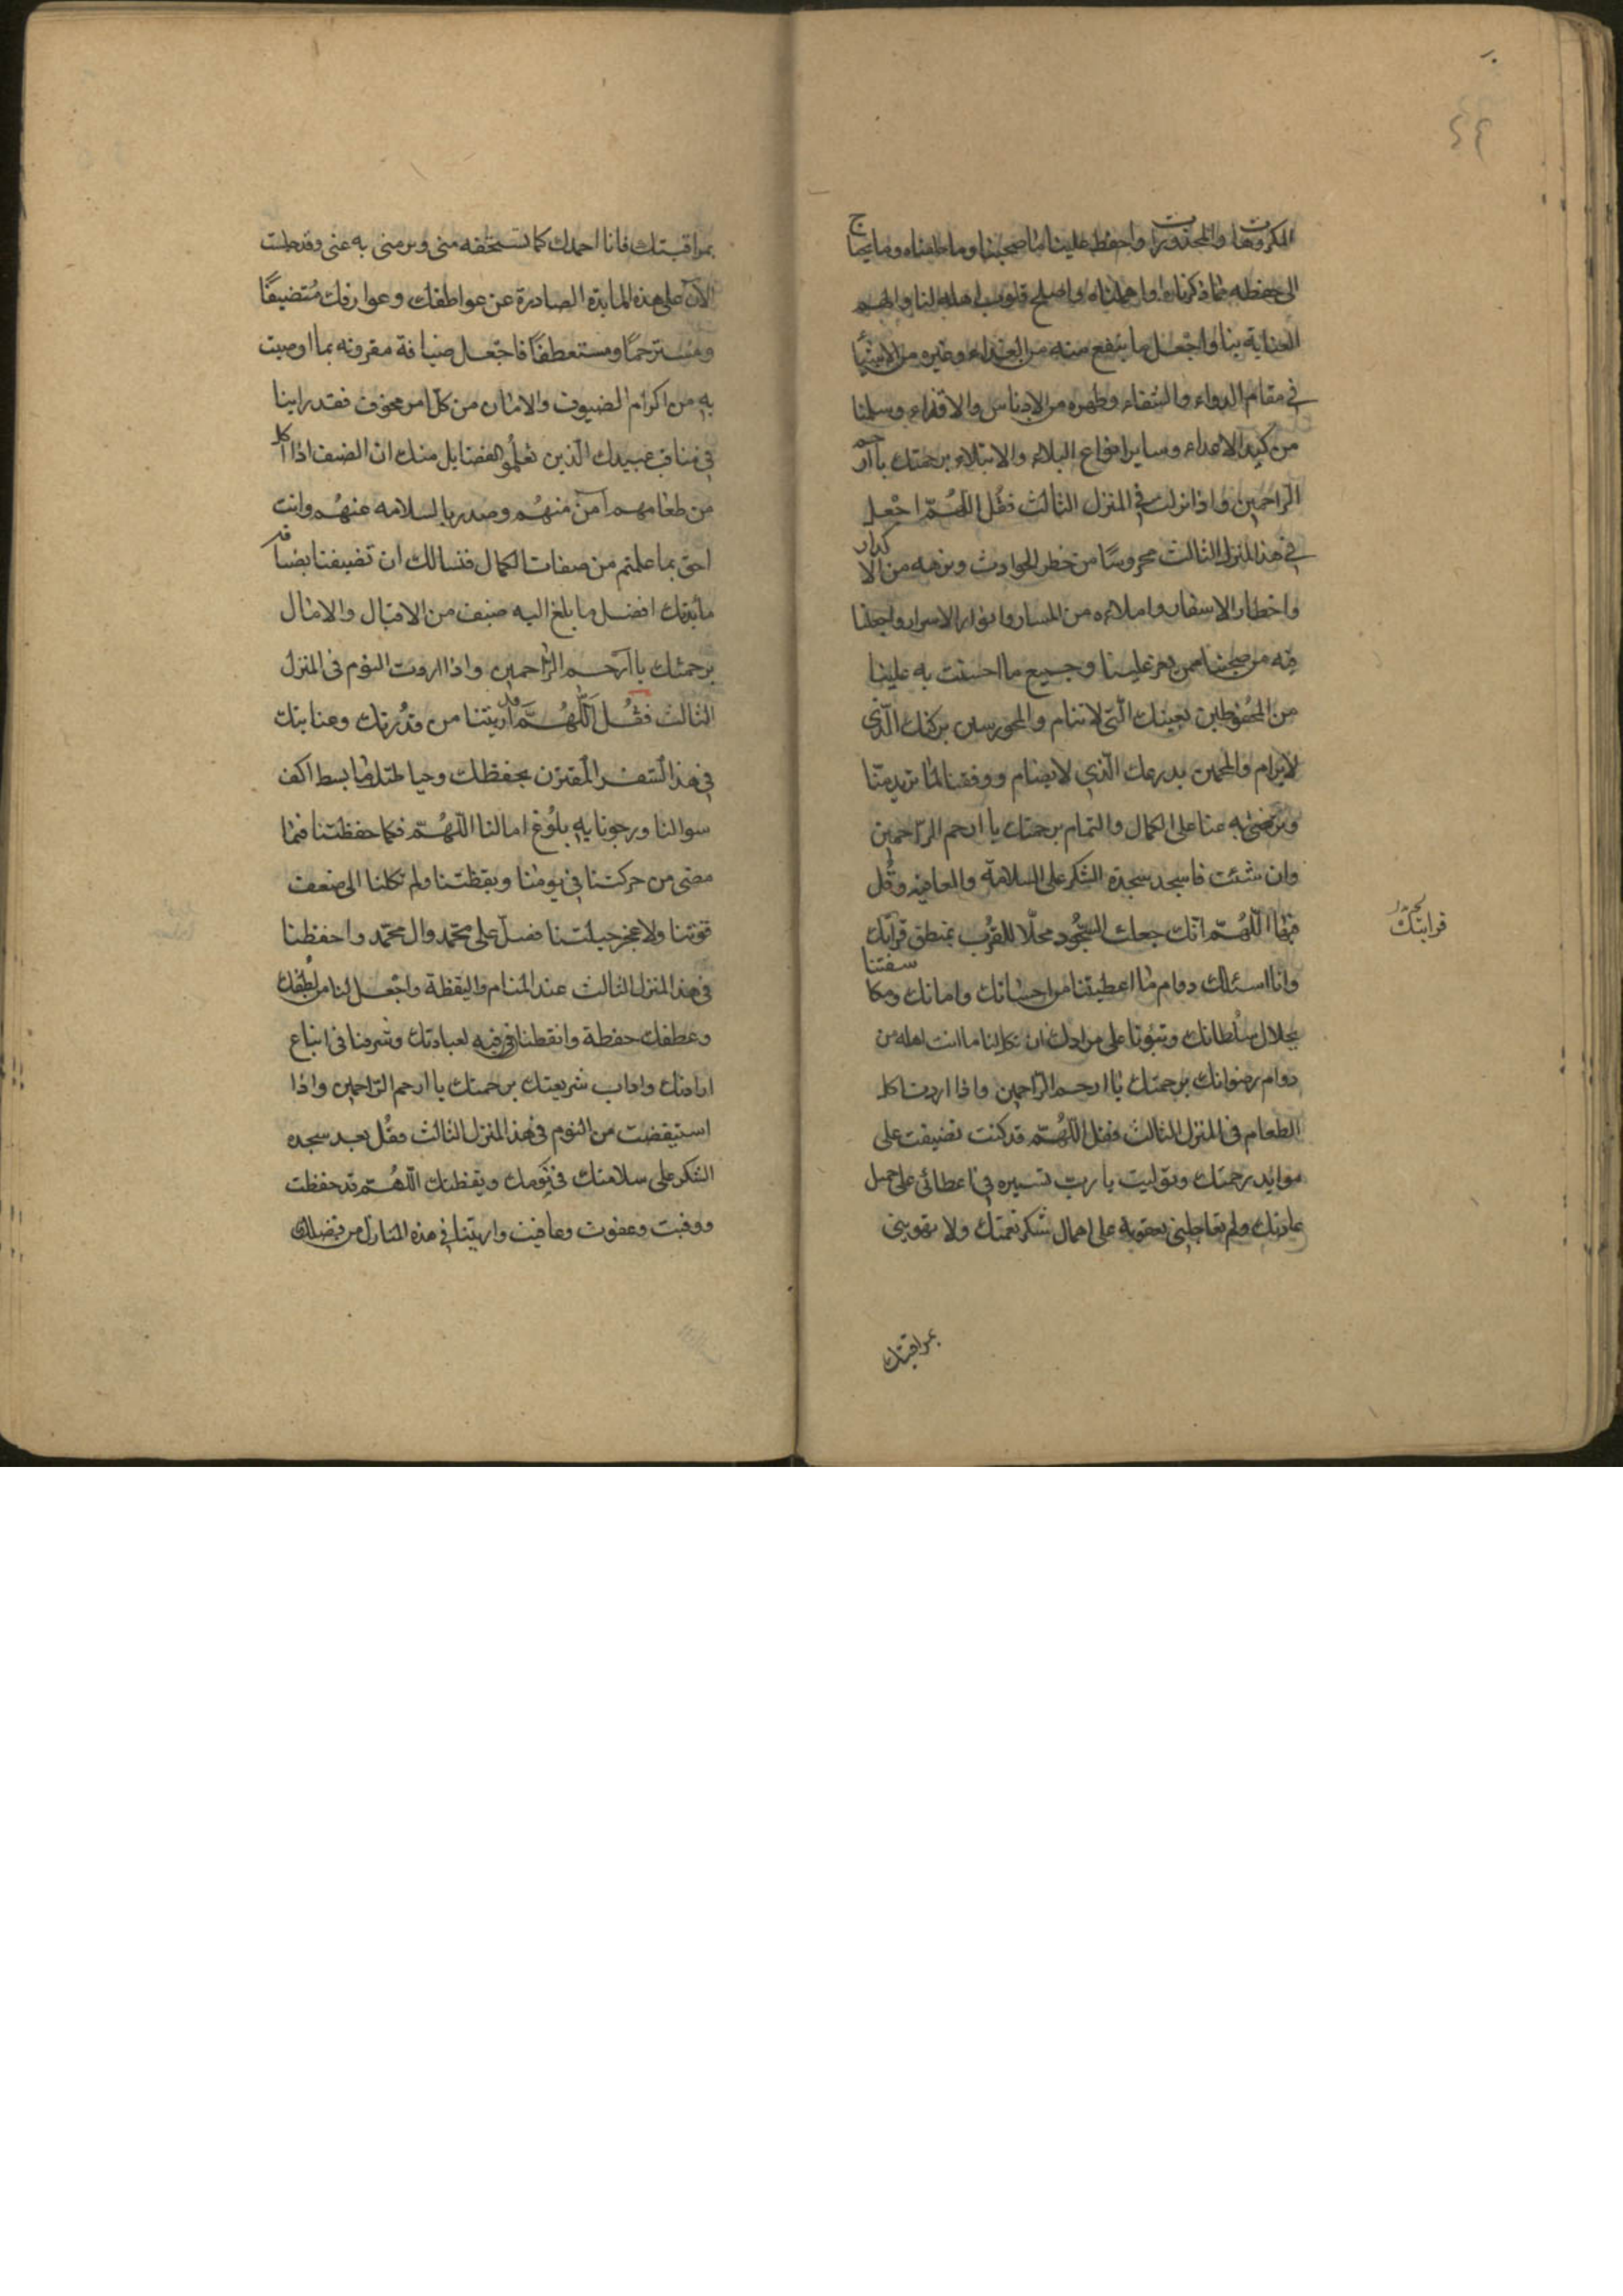 ٤٩
المكروهات والمحذورات واحفظ علينا ما صحبنا وما خلفناه وما يحتاج
الى حفظه مما ذكرناه واهملناه واصلح قلوب اهله لنا والهمهم
العناية بنا واجعل ما ينتفع منه من الغذاء وغيره من الاشياء
في مقام الدواء والشفاء وطهره من الادناس والاقذاء وسلمنا
من كيد الاعداء وساير انواع البلاء والابتلاء برحمتك يا ارحم
الراحمين واذا نزلت في المنزل الثالث فقل اللهم اجعل
في هذا المنزل الثالث محروسا من خطر الحوادث ونزهه من الاكدار
واخطار الاسفار واملاءه من المسار وانوار الاسرار واجعلنا
فيه من صحبنا ممن يعز علينا وجميع ما احسنت به علينا
من المحفوظين بعينك التي لا تنام والمحروسين بركنك الذي
لا يرام والمحميين بدرعك الذي لا يضام ووفقنا لما تريد منا
وترضى به عنا على الكمال والتمام برحمتك يا ارحم الراحمين
وان شئت فاسجد سجدة الشكر على السلامة والعافية وقل
فيها اللهم انك جعلت السجود محلا للقرب بمنطق قرآنك
قرابتك
وانا اسئلك دوام ما اعطيتنا من احسانك وامانك ومكاسفتنا
بجلال سلطانك وتبؤنا على مرادك ان تكلنا ما انت اهله من
دوام رضوانك برحمتك يا ارحم الراحمين واذا اردت اكل
الطعام في المنزل الثالث فقل اللهم قد كنت تضيفت على
موايد رحمتك وتوليت يا رب تسييره في اعطائى على جميل
عادتك ولم تعاجلني بعقوبة على اهمال شكر نعمتك ولا بتهويني
بمراقبتك
بمراقبتك فانا احمدك كما تستحقه مني وترضى به عني وقد جلست
الآن على هذه المايدة الصادرة عن عواطفك وعوارفك متضيفا
ومسترحما ومستعطفا فاجعل ضيافة مقرونه بما اوصيت
به من اكرام الضيوف والامان من كل امر مخوف فقد راينا
في مناقب عبيدك الذين تعلموا الفضايل منك ان الضيف اذا اكل
من طعامهم آمن منهم وصدر بالسلامه عنهم وانت
احق بما علمتم من صفات الكمال فنسالك ان تضيفنا بضيافة
مأبدتك افضل ما بلغ اليه ضيف من الاقبال والامال
برحمتك يا ارحم الراحمين واذا اردت النوم في المنزل
الثالث فقل اللهم قد اريتنا من قدرتك وعنايتك
في هذا السفر المقترن بحفظك وحياطتك ما بسط اكف
سوالنا ورجونا به بلوغ امالنا اللهم فكما حفظتنا فيما
مضى من حركتنا في نومنا ويقظتنا ولم تكلنا الى ضعف
قوتنا ولا عجز حيلتنا فصل على محمد وال محمد واحفظنا
في هذا المنزل الثالث عند المنام واليقظة واجعل لنا من لطفك
وعطفك حفظة وايقظنا فيه لعبادتك وشرفنا في اتباع
ارادتك واداب شريعتك برحمتك يا ارحم الراحمين واذا
استيقضت من النوم في هذا المنزل الثالث فقل بعد سجده
الشكر على سلامتك في نومك ويقظتك اللهم قد حفظت
ووقيت وعفوت وعافيت واريتنا في هذه المنازل من فضلك